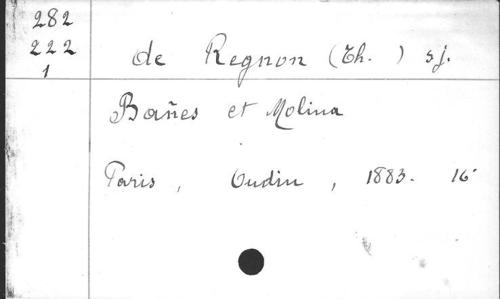 282
222
1
de Regnon (Th. ) s.j.
Bañes et Molina
Paris , Oudin , 1883. 16°